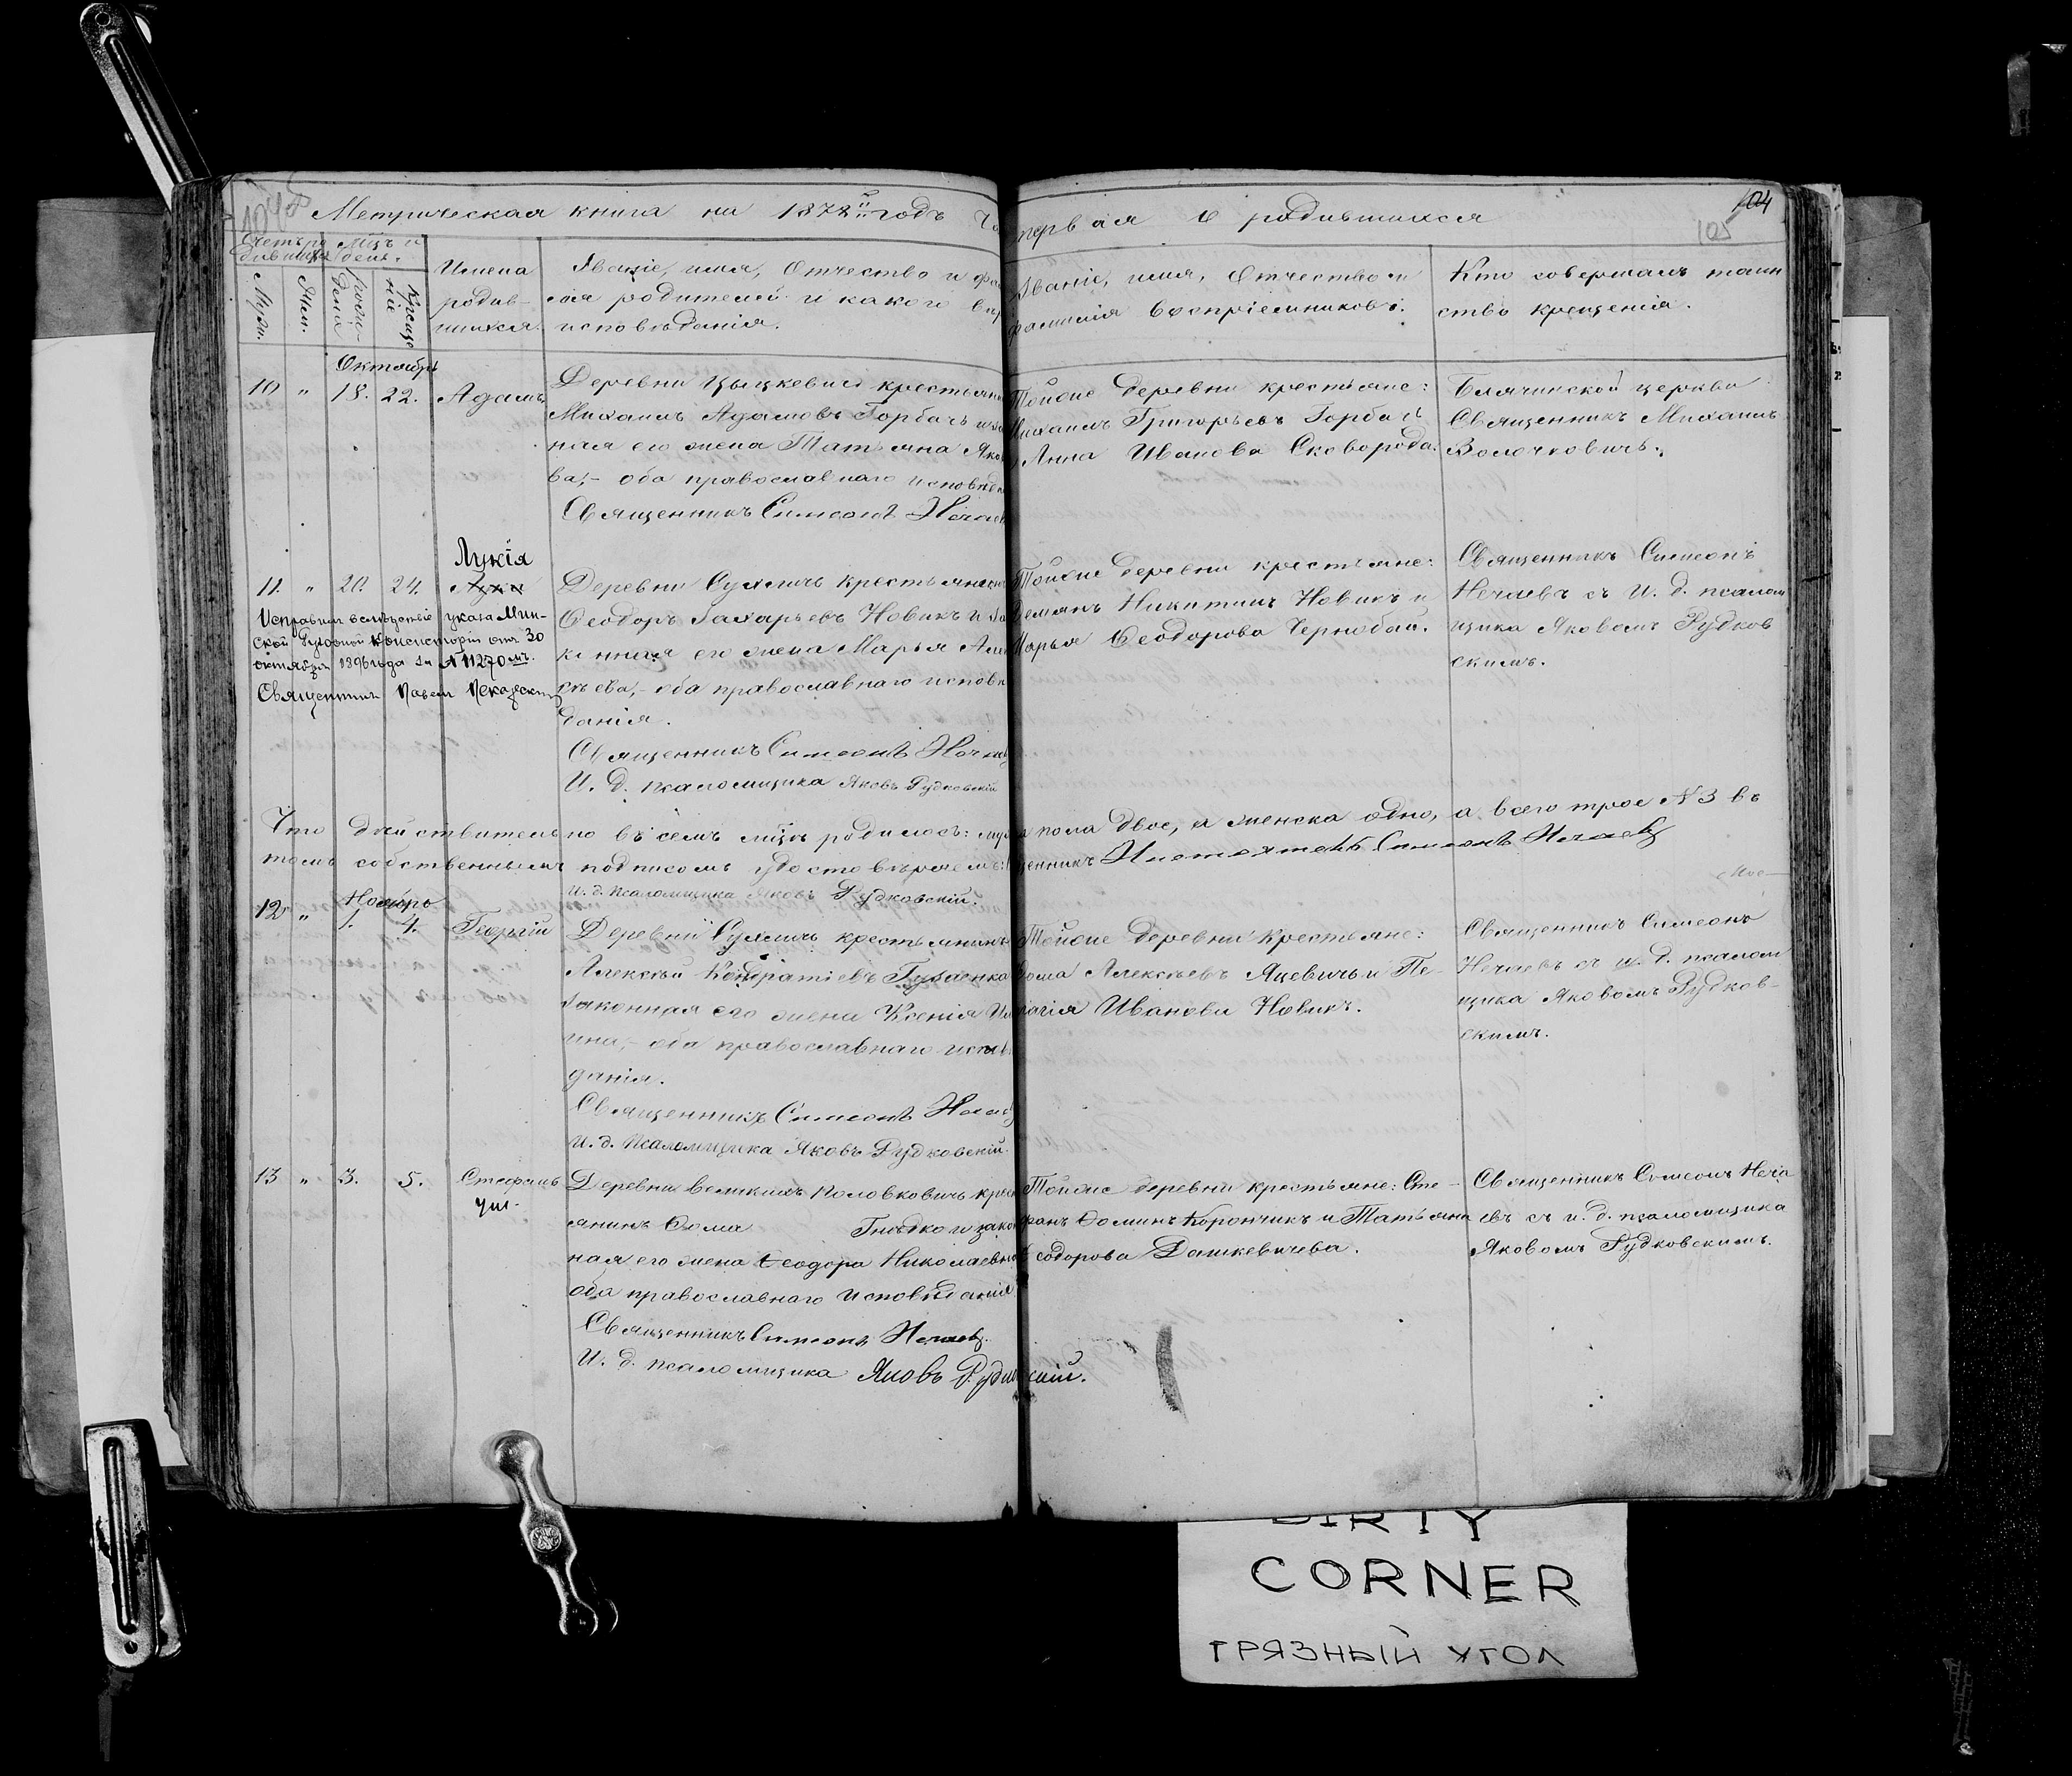 Метрическая книга на 1872й годъ Ча
первая о родившихся
104
105
Счетъ ро
дившихся
Мѣц. и
день.
Муж.
Жен.
рож-
денія
креще
нія
Имена
родив-
шихся.
Званіе, имя, Отчество и фа
лія родителей и какого вѣр
исповѣданія.
Званіе, имя, Отчество и
фамилія воспріемниковъ.
Кто совершалъ таин
ство крещенія.
Октябрь
10 " 18. 22. Адамъ
Деревни Цыцкевичъ крестьянин
Михаилъ Адамовъ Горбачъ и за
ная его жена Татьяна Яко
ва,- оба православнаго исповѣд
Священникъ Симеонъ Нечаев
Тойже деревни крестьяне:
Михаилъ Григорьевъ Горбачъ
Анна Иванова Сковорода.
Блячинской церкви
Священникъ Михаилъ
Волочковичъ.
Лукія
11. " 20. 24. Лука
Исправилъ вслѣдствіе указа Мин-
ской Духовной Консисторіи отъ 30
октября 1896 года за № 11270мъ.
Священникъ Павелъ
Деревни Сухличъ крестьянин
Ѳеодоръ Захарьевъ Новикъ и за
конная его жена Марья Але
сѣева,- оба православнаго исповѣ
данія.
Священникъ Симеонъ Нечаев
И. д. псаломщика Яковъ Рудковскій
Тойже деревни крестьяне:
Демянъ Никитинъ Новикъ и
Марья Ѳеодорова Чернобай.
Священникъ Симеонъ
Нечаевъ съ И. д. псалом
щика Яковомъ Рудков
скимъ.
Что дѣйствительно въ семъ мѣцѣ родилось: муж
а пола двое, а женска одно, а всего трое № 3 въ
томъ собственнымъ подписомъ удостовѣряемъ:
щенникъ Настоятель Симеонъ Нечаевъ
И. д. Псаломщика Яковъ Рудковскій.
Ноябрь
12 " 1. 4. Георгій
Деревни Сухличъ крестьянинъ
Алексѣй Кондратіевъ
Законная его жена Ксенія
ина,- оба православнаго исповѣ
данія.
Священникъ Симеонъ Нечаев
И. д. Псаломщика Яковъ Рудковскій.
Тойже деревни крестьяне:
Ѳома Алексѣевъ Яцевичъ и Пе-
лагія Иванова Новикъ.
Священникъ Симеонъ
Нечаевъ съ и. д. псалом
щика Яковомъ Рудков-
скимъ.
13 " 3. 5. Стефанъ
ум.
Деревни Великихъ Половковичъ крест
янинъ Ѳома Гнѣдко и закон
ная его жена Ѳеодора Николаевна
оба православнаго исповѣданія
Священникъ Симеонъ Нечаевъ.
И. д. псаломщика Яковъ Рудковскій.
Тойже деревни крестьяне: Сте-
фанъ Ѳоминъ Корончикъ и Татьяна
Ѳеодорова Дашкевичева.
Священникъ Симеонъ Неча
евъ съ и. д. псаломщика
Яковомъ Рудковскимъ.
DIRTY
CORNER
ГРЯЗНЫЙ УГОЛ